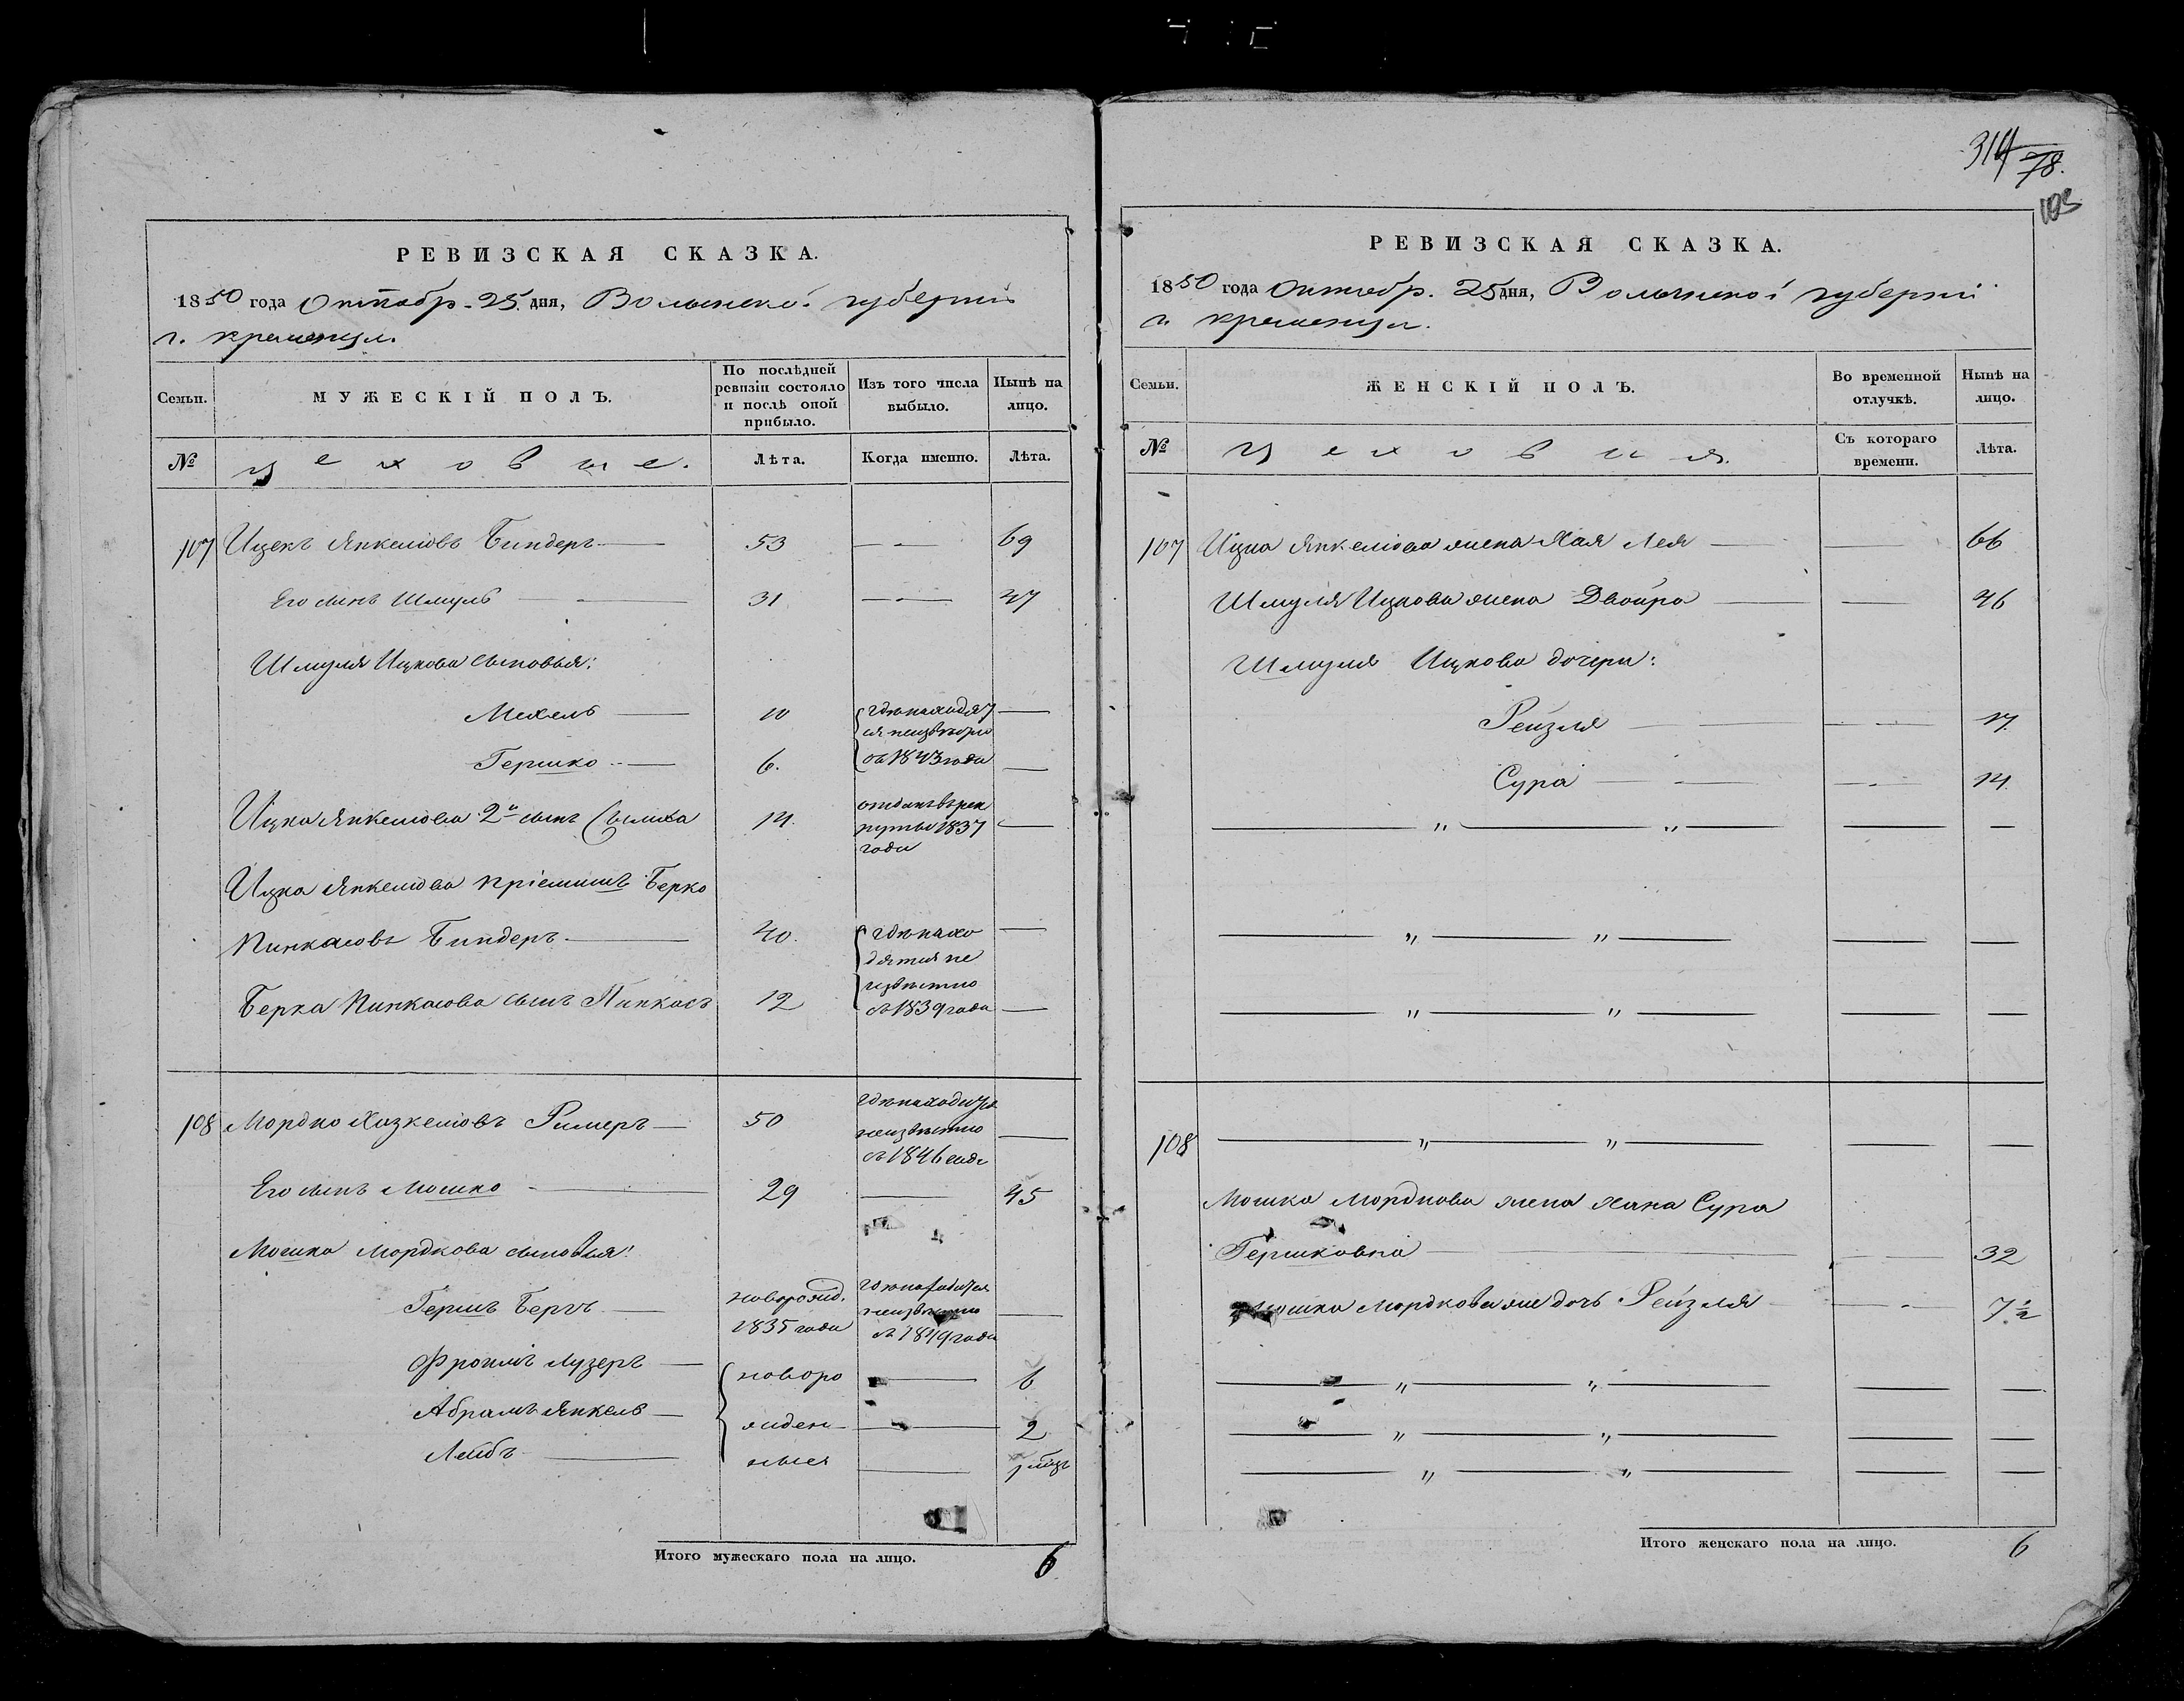 РЕВИЗСКАЯ СКАЗКА.
1850 года Октябр. 25 дня, Волынской губерніи
г. кременца.
Семьи.
МУЖЕСКІЙ ПОЛЪ.
По послѣдней ревизіи состояло и послѣ оной прибыло.
Изъ того числа выбыло.
Нынѣ на лицо.
№
цеховые.
Лѣта.
Когда именно.
Лѣта.
107 Ицекъ Янкелювъ Биндеръ 53 69
Его сынъ Шмуль 31 47
Шмуля Ицкова сыновья:
Мехель 10
Гершко 6.
гдѣ находят
ся неизвѣстно
съ 1843 года
Ицка Янкелюва 2й сынъ 14
отданъ въ рек
руты 1837
года
Ицка Янкелюва пріемышъ Берко
Пинкасовъ Биндеръ 40
Берка Пинкасова сынъ Пинкасъ 12
гдѣ нахо
дятся не
извѣстно
съ 1839 года
108 Мордко Хозкелювъ Римеръ 50
гдѣ находится
неизвѣстно
съ 1846 года
Его сынъ Мошко 29 45
Мошка Мордкова сыновья:
Гершъ Беръ
новорожд.
1835 года
гдѣ находится
неизвѣстно
съ 1849 года
Фроимъ Лузеръ 6
Абрамъ Янкель 2
Лейбъ 1 мѣц
новоро
жден
ные
Итого мужескаго пола на лицо. 6
314
78.
103
РЕВИЗСКАЯ СКАЗКА.
1850 года Октябр. 25 дня, Волынской губерніи
г. кременца.
Семьи.
ЖЕНСКІЙ ПОЛЪ.
Во временной отлучкѣ.
Нынѣ на лицо.
№
цеховыя.
Съ котораго времени.
Лѣта.
107 Ицка Янкелюва жена Хая Лея 66
Шмуля Ицкова жена Двойра 46
Шмуля Ицкова дочери:
Рейзля 17
Сура 14
108
Мошка Мордкова жена Хана Сура
Гершковна 32
Мошка Мордкова дочь Рейзля 7 ½
Итого женскаго пола на лицо. 6